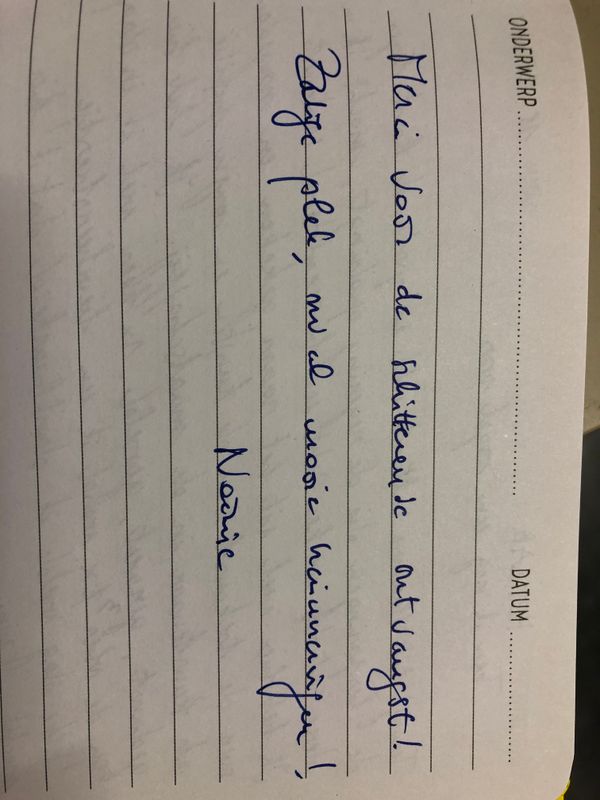 ONDERWERP DATUM
Merci voor de schitterende ontvangst!
Zalige plek, nu al mooie herinneringen!